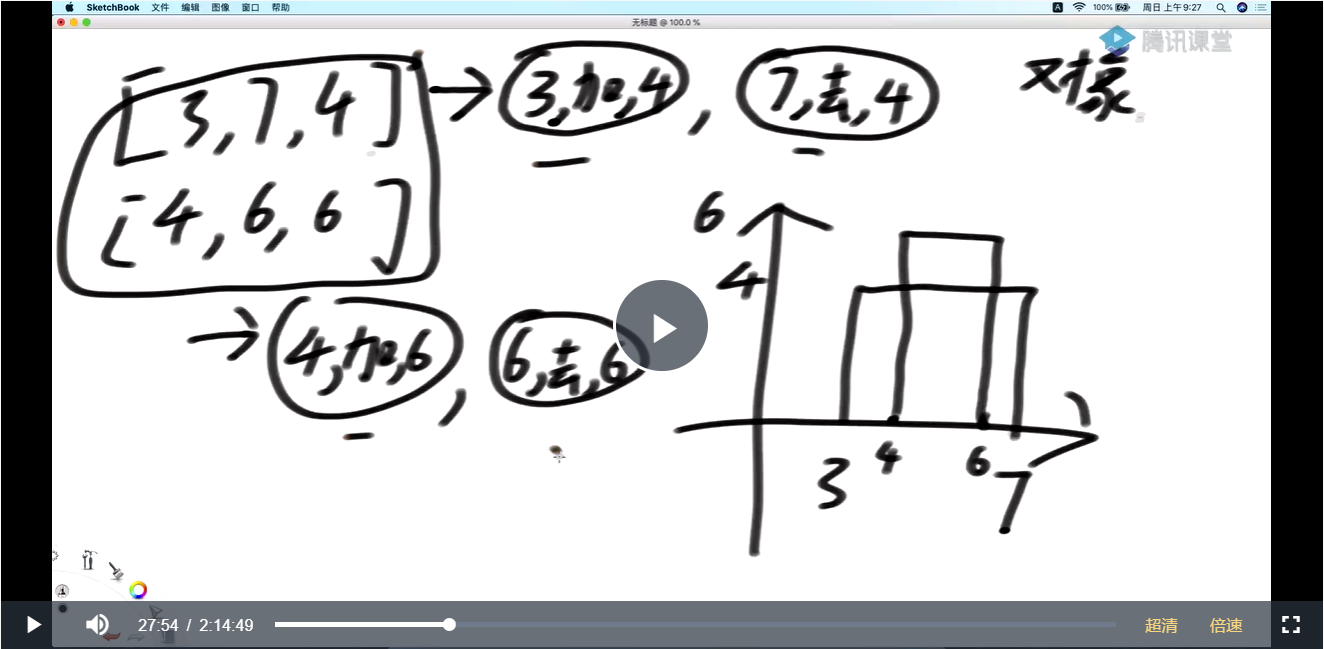 SketchBook 文件 编辑 图像 窗口 帮助 A 100% 周日 上午9:27
无标题 @ 100.0 %
腾讯课堂
[3,7,4] → 3,加,4 , 7,去,4 对象
[4,6,6]
→ 4,加,6 , 6,去,6
6
4
3 4 6 7
27:54 / 2:14:49 超清 倍速